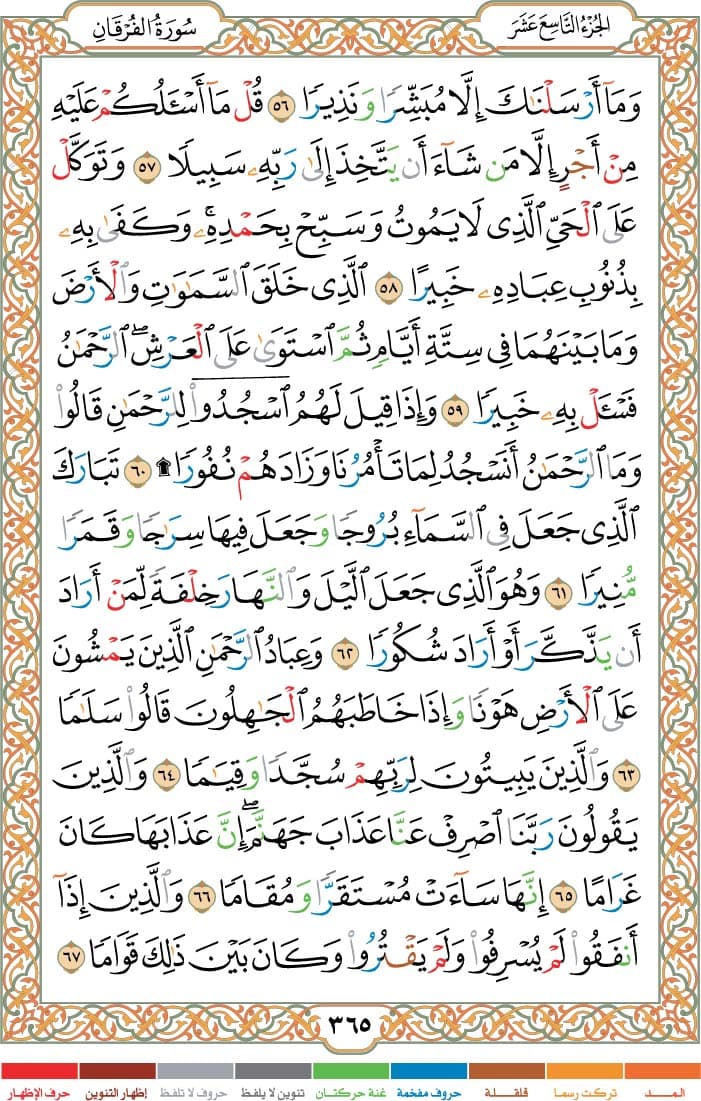 الجُزْءُ التَّاسِعَ عَشَرَ
سُورَةُ الفُرْقَانِ
وَمَآ أَرْسَلْنَٰكَ إِلَّا مُبَشِّرًا وَنَذِيرًا ٥٦ قُلْ مَآ أَسْـَٔلُكُمْ عَلَيْهِ
مِنْ أَجْرٍ إِلَّا مَن شَآءَ أَن يَتَّخِذَ إِلَىٰ رَبِّهِۦ سَبِيلًا ٥٧ وَتَوَكَّلْ
عَلَى ٱلْحَىِّ ٱلَّذِى لَا يَمُوتُ وَسَبِّحْ بِحَمْدِهِۦۚ وَكَفَىٰ بِهِۦ
بِذُنُوبِ عِبَادِهِۦ خَبِيرًا ٥٨ ٱلَّذِى خَلَقَ ٱلسَّمَٰوَٰتِ وَٱلْأَرْضَ
وَمَا بَيْنَهُمَا فِى سِتَّةِ أَيَّامٍ ثُمَّ ٱسْتَوَىٰ عَلَى ٱلْعَرْشِۖ ٱلرَّحْمَٰنُ
فَسْـَٔلْ بِهِۦ خَبِيرًا ٥٩ وَإِذَا قِيلَ لَهُمُ ٱسْجُدُوا۟ لِلرَّحْمَٰنِ قَالُوا۟
وَمَا ٱلرَّحْمَٰنُ أَنَسْجُدُ لِمَا تَأْمُرُنَا وَزَادَهُمْ نُفُورًا ۩ ٦٠ تَبَارَكَ
ٱلَّذِى جَعَلَ فِى ٱلسَّمَآءِ بُرُوجًا وَجَعَلَ فِيهَا سِرَٰجًا وَقَمَرًا
مُّنِيرًا ٦١ وَهُوَ ٱلَّذِى جَعَلَ ٱلَّيْلَ وَٱلنَّهَارَ خِلْفَةً لِّمَنْ أَرَادَ
أَن يَذَّكَّرَ أَوْ أَرَادَ شُكُورًا ٦٢ وَعِبَادُ ٱلرَّحْمَٰنِ ٱلَّذِينَ يَمْشُونَ
عَلَى ٱلْأَرْضِ هَوْنًا وَإِذَا خَاطَبَهُمُ ٱلْجَٰهِلُونَ قَالُوا۟ سَلَٰمًا
٦٣ وَٱلَّذِينَ يَبِيتُونَ لِرَبِّهِمْ سُجَّدًا وَقِيَٰمًا ٦٤ وَٱلَّذِينَ
يَقُولُونَ رَبَّنَا ٱصْرِفْ عَنَّا عَذَابَ جَهَنَّمَۖ إِنَّ عَذَابَهَا كَانَ
غَرَامًا ٦٥ إِنَّهَا سَآءَتْ مُسْتَقَرًّا وَمُقَامًا ٦٦ وَٱلَّذِينَ إِذَآ
أَنفَقُوا۟ لَمْ يُسْرِفُوا۟ وَلَمْ يَقْتُرُوا۟ وَكَانَ بَيْنَ ذَٰلِكَ قَوَامًا ٦٧
٣٦٥
المـــد تركت رسما قلقلة حروف مفخمة غنة حركتان تنوين لا يلفظ حروف لا تلفظ إظهار التنوين حرف الإظهار